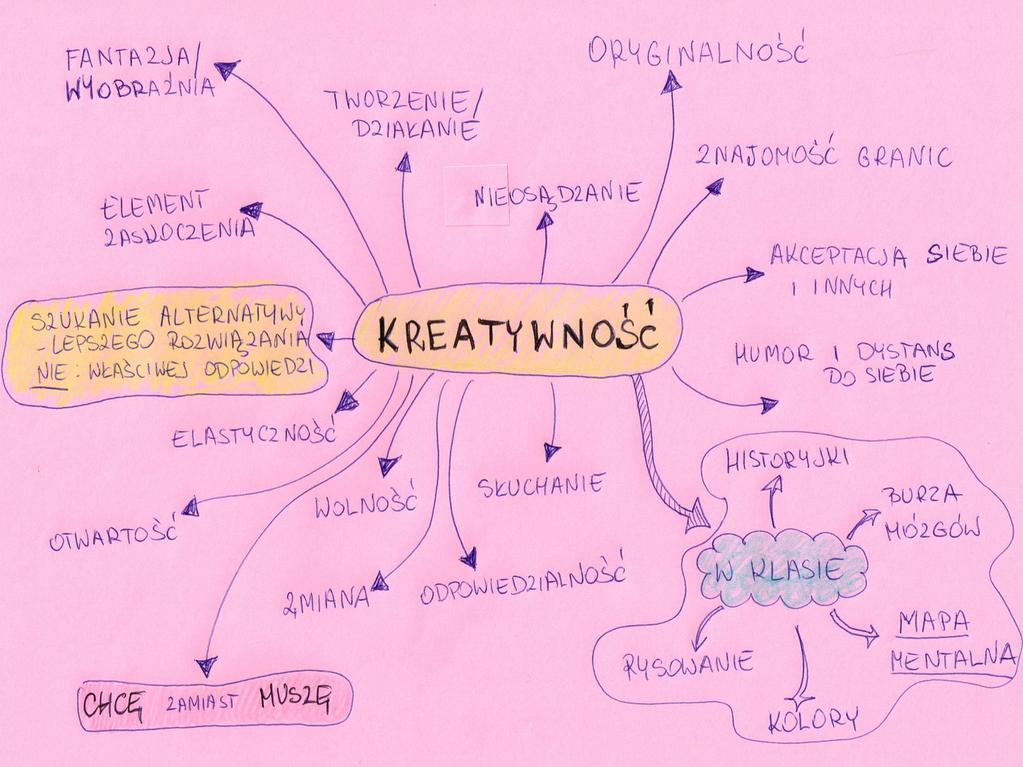 FANTAZJA/
WYOBRAŹNIA
TWORZENIE/
DZIAŁANIE
ORYGINALNOŚĆ
NIEOSĄDZANIE
ZNAJOMOŚĆ GRANIC
ELEMENT
ZASKOCZENIA
AKCEPTACJA SIEBIE
I INNYCH
SZUKANIE ALTERNATYWY
- LEPSZEGO ROZWIĄZANIA
NIE: WŁAŚCIWEJ ODPOWIEDZI
KREATYWNOŚĆ
HUMOR I DYSTANS
DO SIEBIE
ELASTYCZNOŚĆ
OTWARTOŚĆ
WOLNOŚĆ
SŁUCHANIE
ZMIANA
ODPOWIEDZIALNOŚĆ
CHCĘ ZAMIAST MUSZĘ
HISTORYJKI
BURZA
MÓZGÓW
W KLASIE
MAPA
MENTALNA
RYSOWANIE
KOLORY